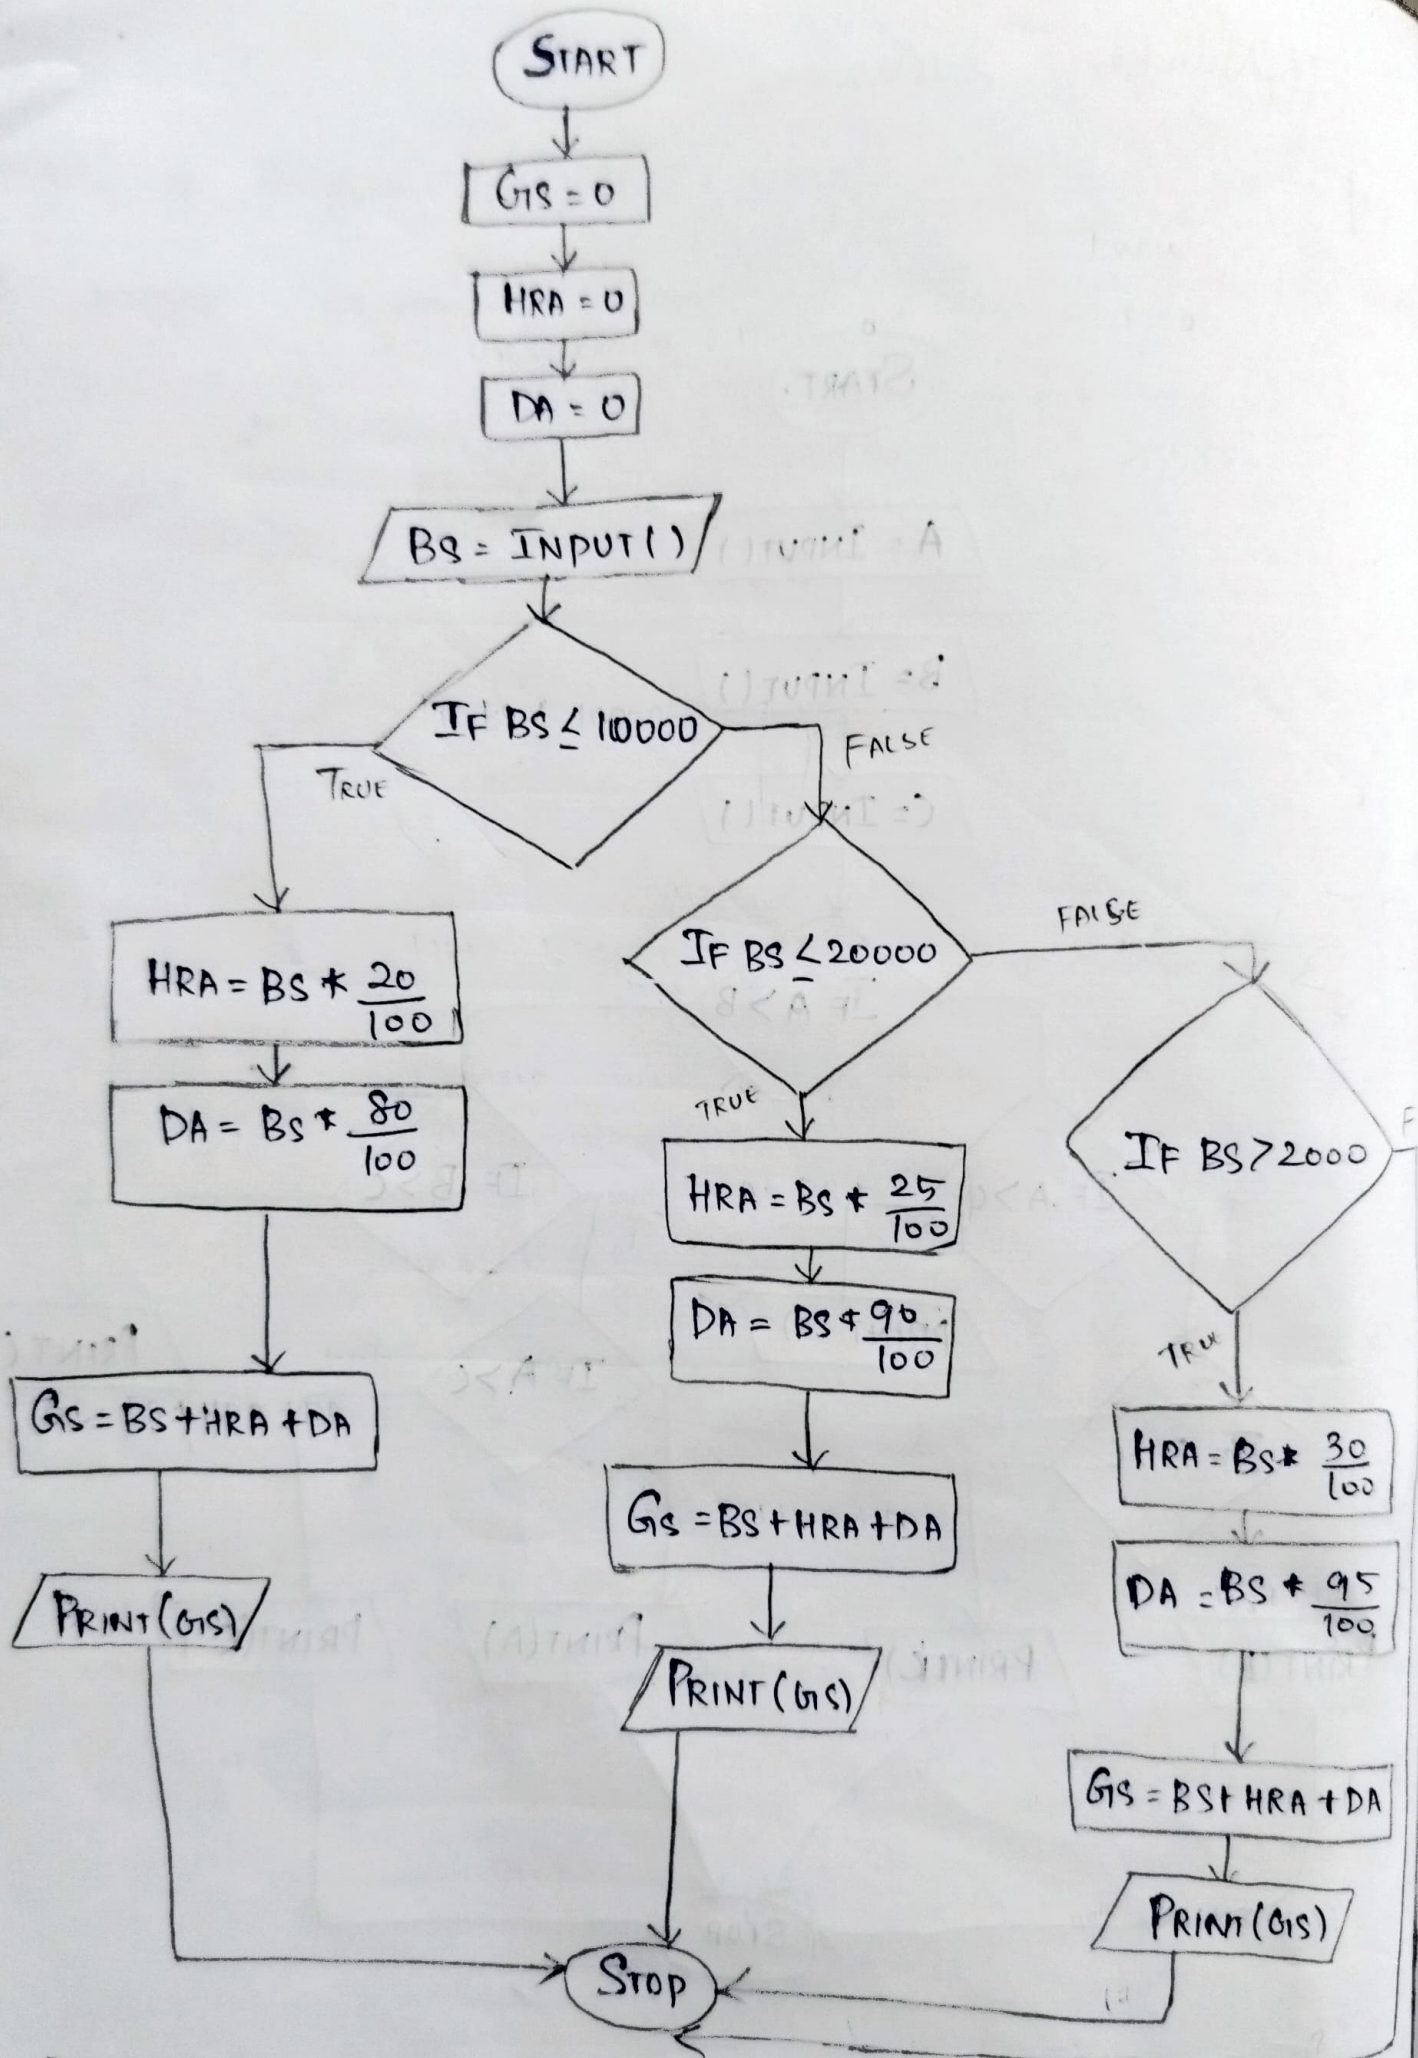 START
GS = 0
HRA = 0
DA = 0
BS = INPUT()
IF BS ≤ 10000
TRUE
FALSE
HRA = BS * 20/100
DA = BS * 80/100
GS = BS + HRA + DA
PRINT(GS)
IF BS ≤ 20000
FALSE
TRUE
HRA = BS * 25/100
DA = BS * 90/100
GS = BS + HRA + DA
PRINT(GS)
IF BS > 2000
F
TRUE
HRA = BS * 30/100
DA = BS * 95/100
GS = BS + HRA + DA
PRINT(GS)
STOP